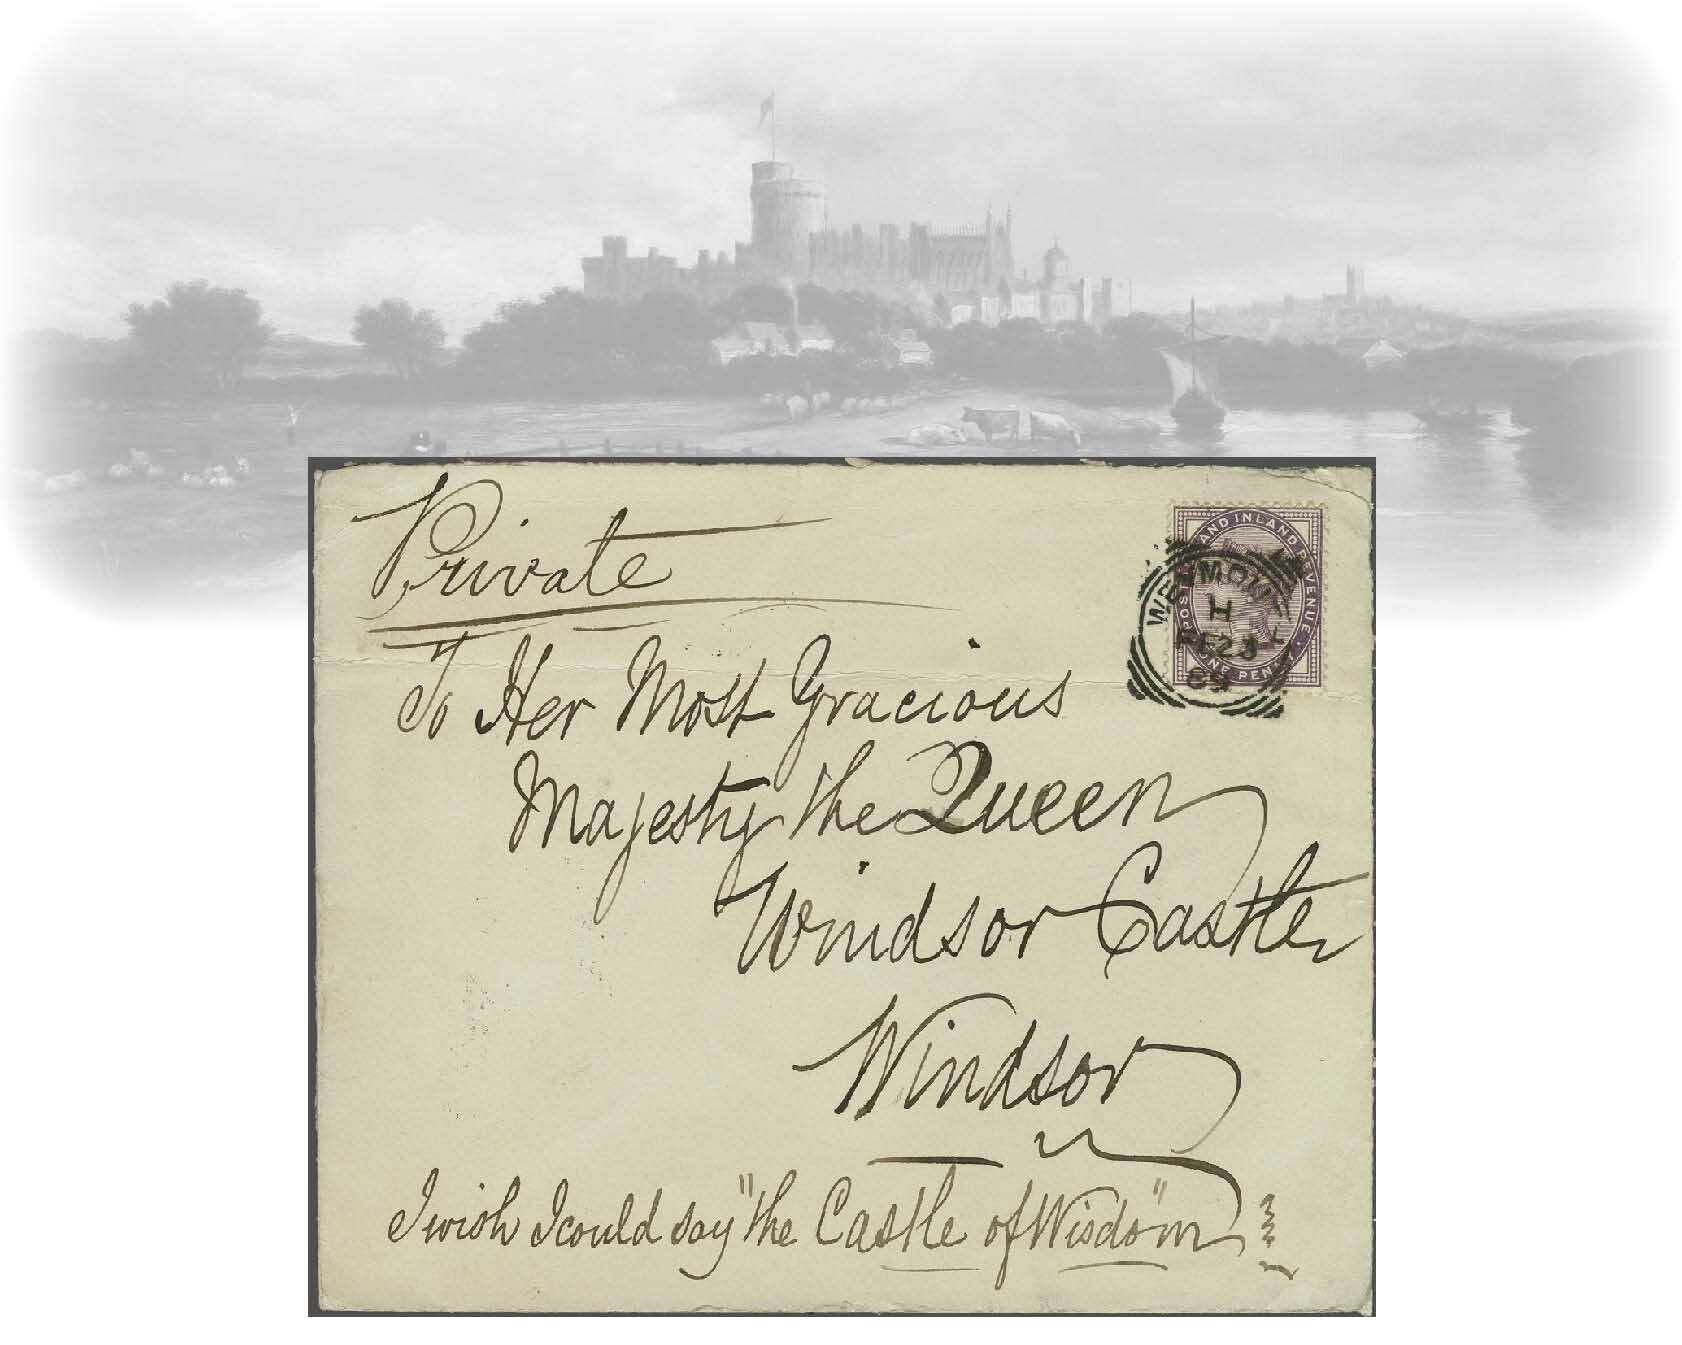 Private
To Her Most Gracious
Majesty the Queen
Windsor Castle
Windsor
I wish I could say "the Castle of Wisdom"
POSTAGE AND INLAND REVENUE
ONE PENNY
H
FE 23
89